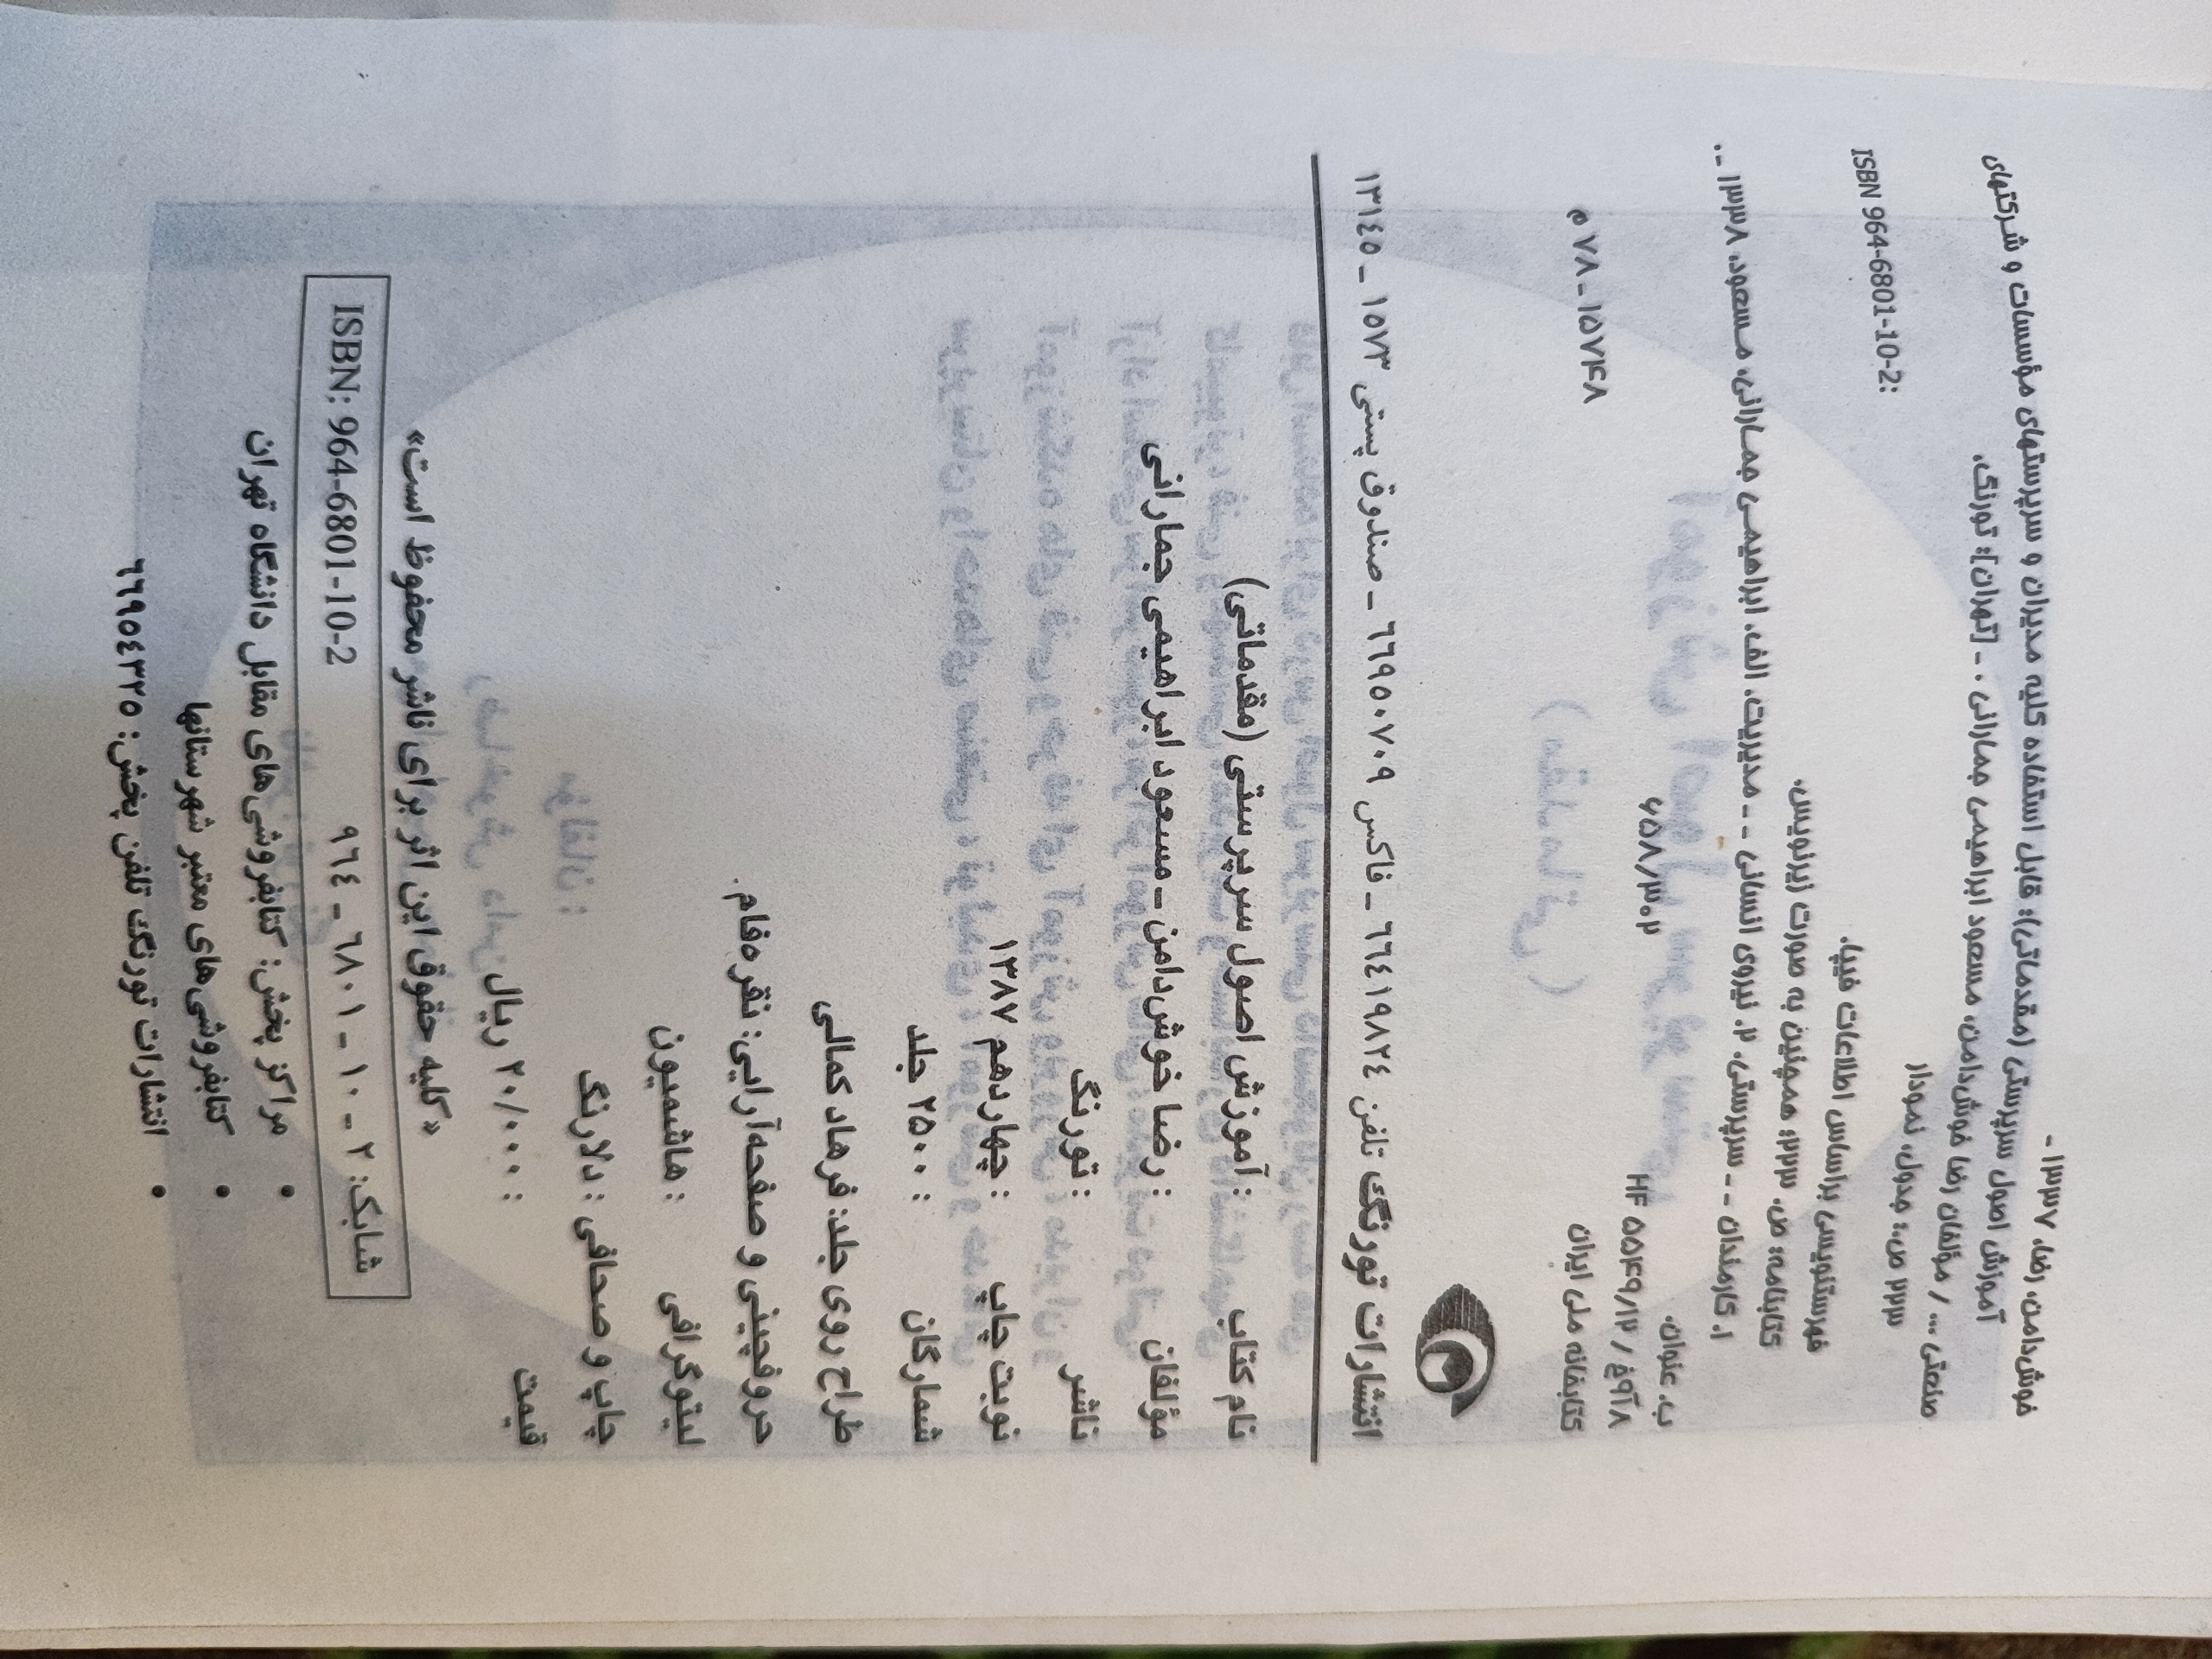 خوش‌دامن، رضا، ۱۳۳۷ -
آموزش اصول سرپرستی (مقدماتی): قابل استفاده کلیه مدیران و سرپرستهای مؤسسات و شرکتهای
صنعتی ... / مؤلفان رضا خوش‌دامن، مسعود ابراهیمی جمارانی . - [تهران]: تورنگ،
۲۲۳ ص.: جدول، نمودار
ISBN 964-6801-10-2:
فهرستنویسی براساس اطلاعات فیپا.
کتابنامه: ص. ۲۲۳؛ همچنین به صورت زیرنویس.
۱. کارمندان - - سرپرستی. ۲. نیروی انسانی - - مدیریت. الف. ابراهیمی جمارانی، مسعود، ۱۳۳۸ - .
ب. عنوان.
۸آ۹خ / ۵۵۴۹/۱۲ HF ۶۵۸/۳۰۲
کتابخانه ملی ایران ۱۵۷۴۸ - ۷۸ م
انتشارات تورنگ تلفن ٦٦٤١٩٨٢٤ - فاکس ٦٦٩٥٠٧٠٩ - صندوق پستی ۱۵۷۳ - ١٣١٤٥
نام کتاب : آموزش اصول سرپرستی (مقدماتی)
مؤلفان : رضا خوش‌دامن - مسعود ابراهیمی جمارانی
ناشر : تورنگ
نوبت چاپ : چهاردهم ۱۳۸۷
شمارگان : ۲۵۰۰ جلد
طراح روی جلد: فرهاد کمالی
حروفچینی و صفحه‌آرایی: نقره‌فام.
لیتوگرافی : هاشمیون
چاپ و صحافی : دلارنگ
قیمت : ۲۰/۰۰۰ ریال
«کلیه حقوق این اثر برای ناشر محفوظ است»
شابک: ٢ - ١٠ - ٦٨٠١ - ٩٦٤ ISBN: 964-6801-10-2
• مراکز پخش: کتابفروشی‌های مقابل دانشگاه تهران
• کتابفروشی‌های معتبر شهرستانها
• انتشارات تورنگ تلفن پخش: ٦٦٩٥٤٣٢٥